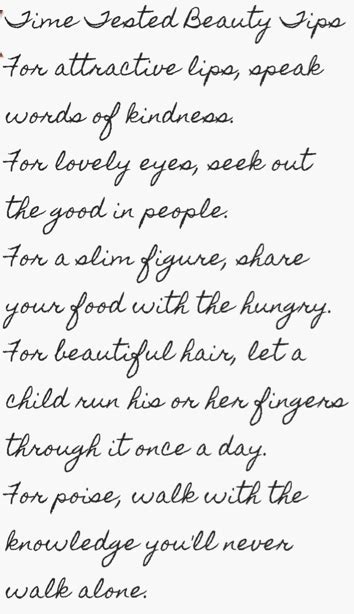 Time Tested Beauty Tips
For attractive lips, speak
words of kindness.
For lovely eyes, seek out
the good in people.
For a slim figure, share
your food with the hungry.
For beautiful hair, let a
child run his or her fingers
through it once a day.
For poise, walk with the
knowledge you'll never
walk alone.